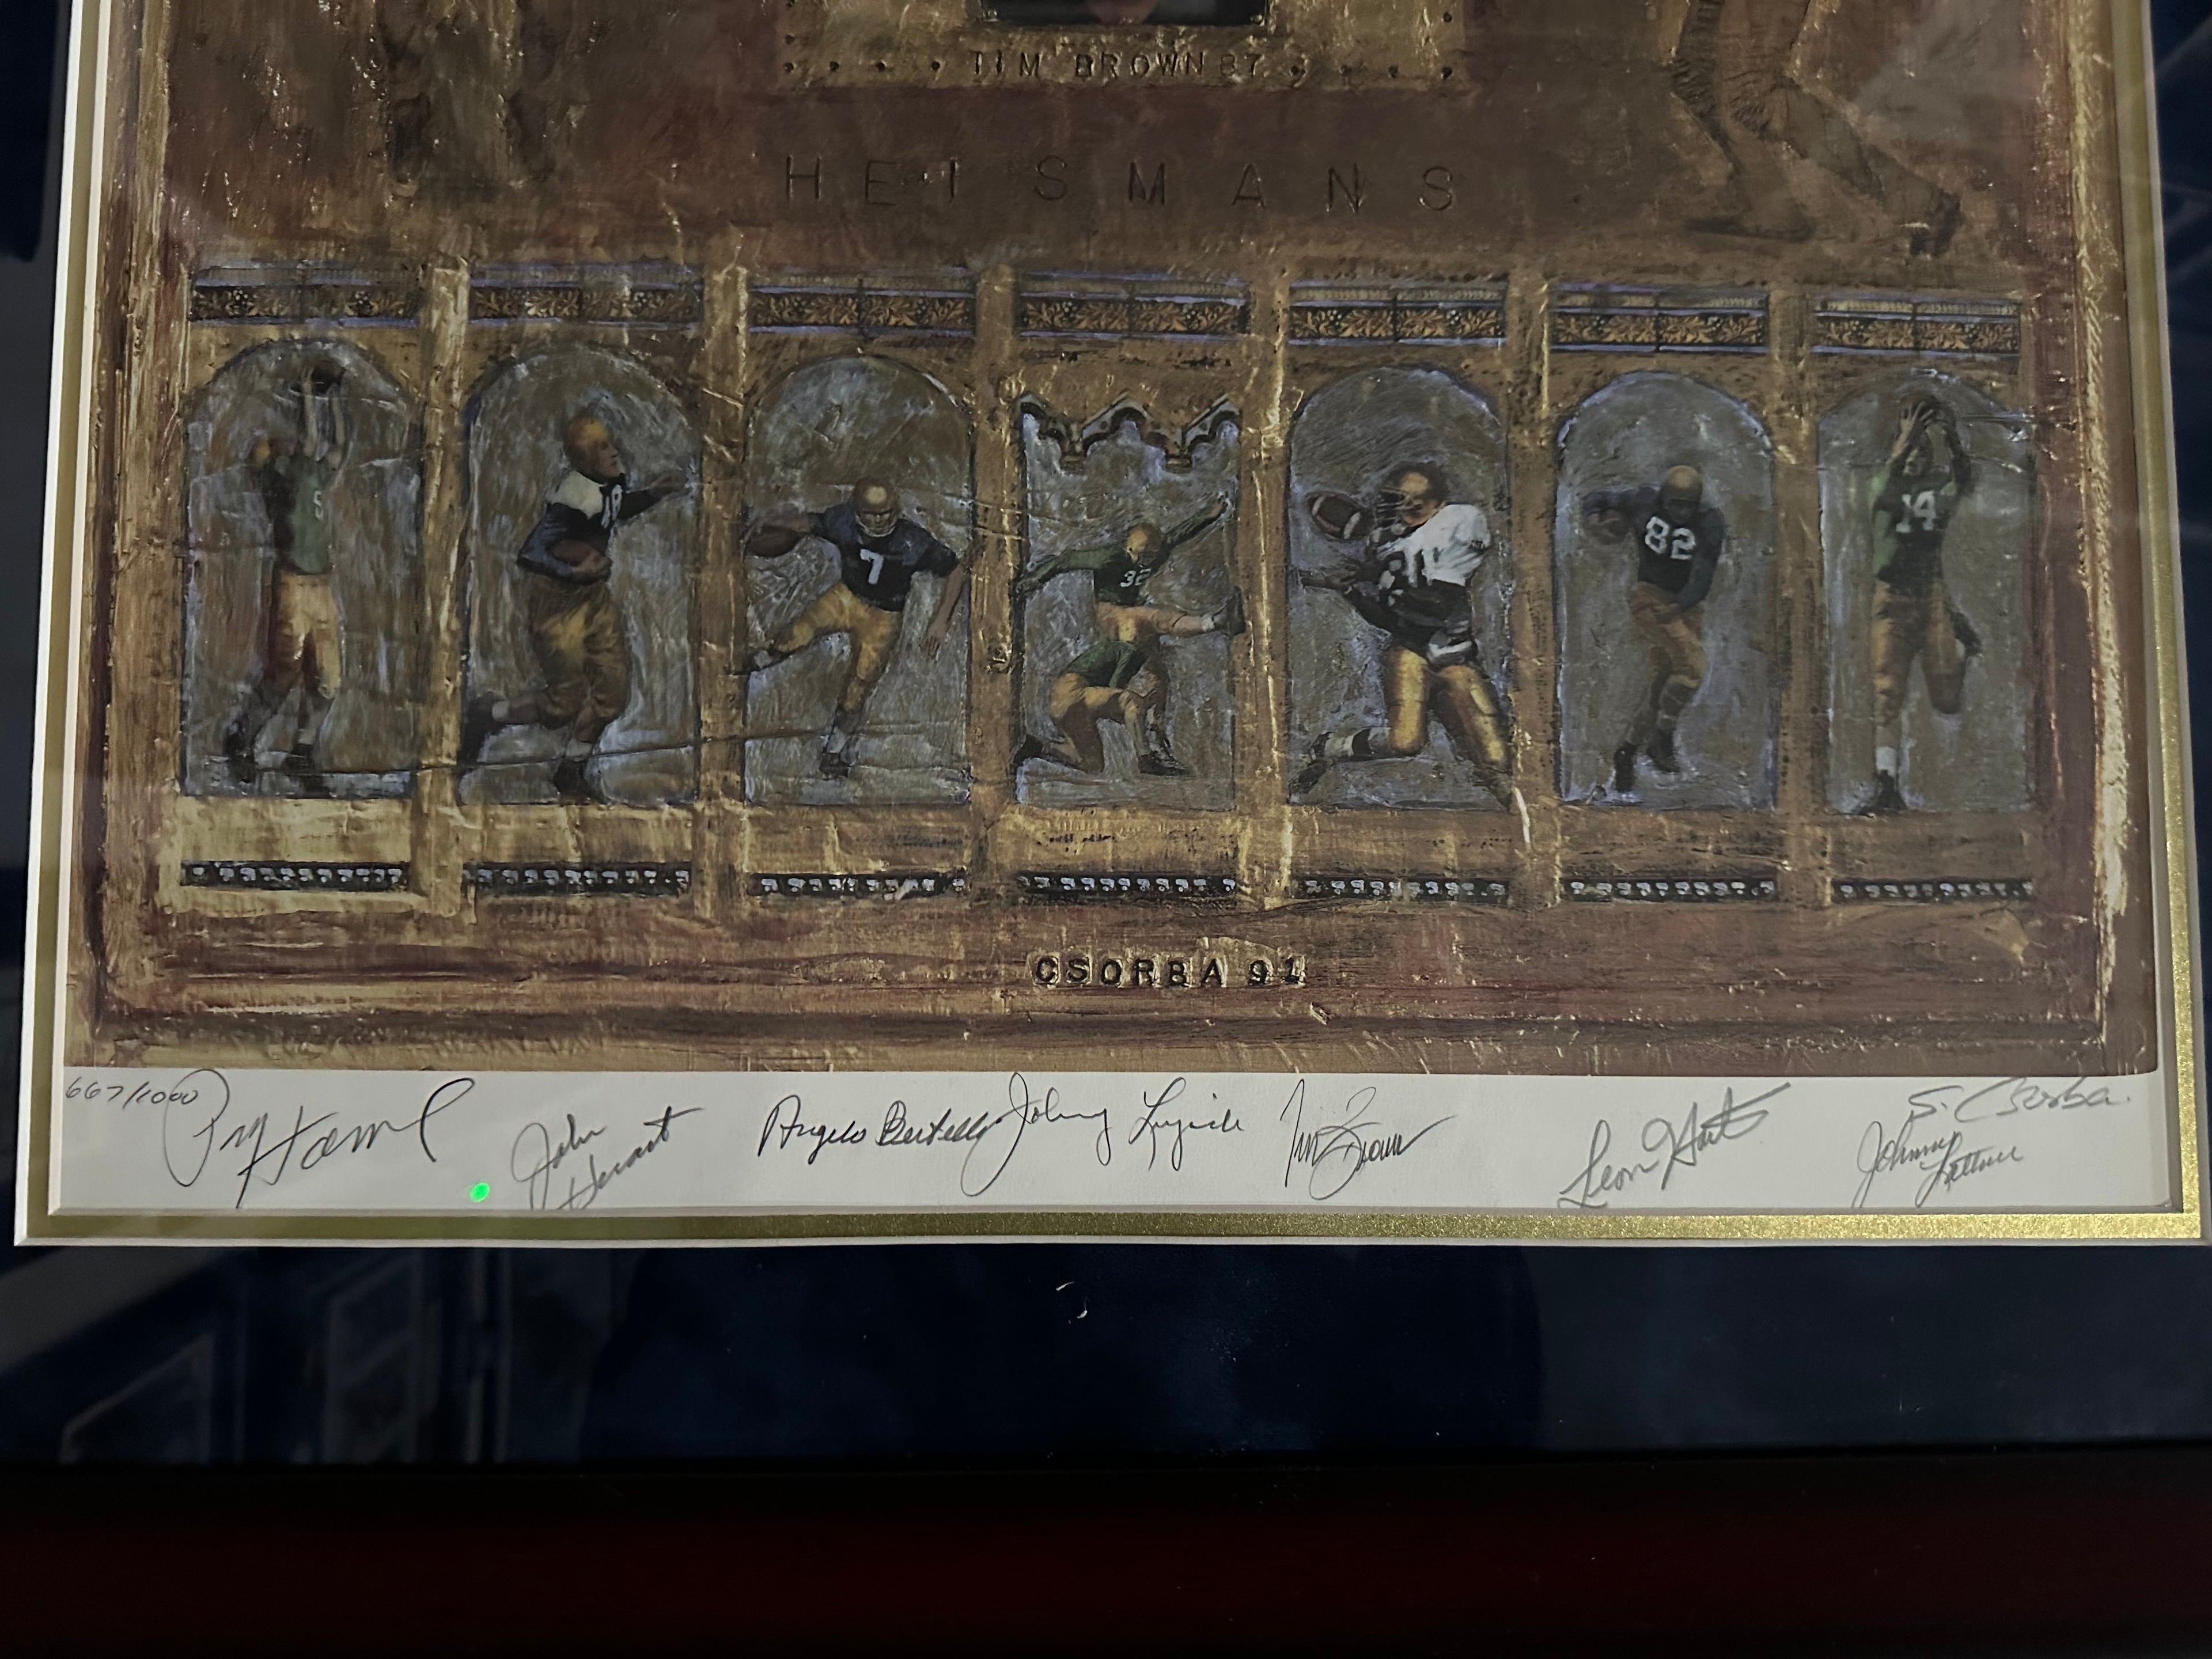 TIM BROWN 87
HEISMANS
5
7
32
81
82
14
CSORBA 91
667/1000
John
Angelo Bertelli
Johnny Lujack
Tim Brown
Leon Hart
S. Csorba.
Johnny
Lattner